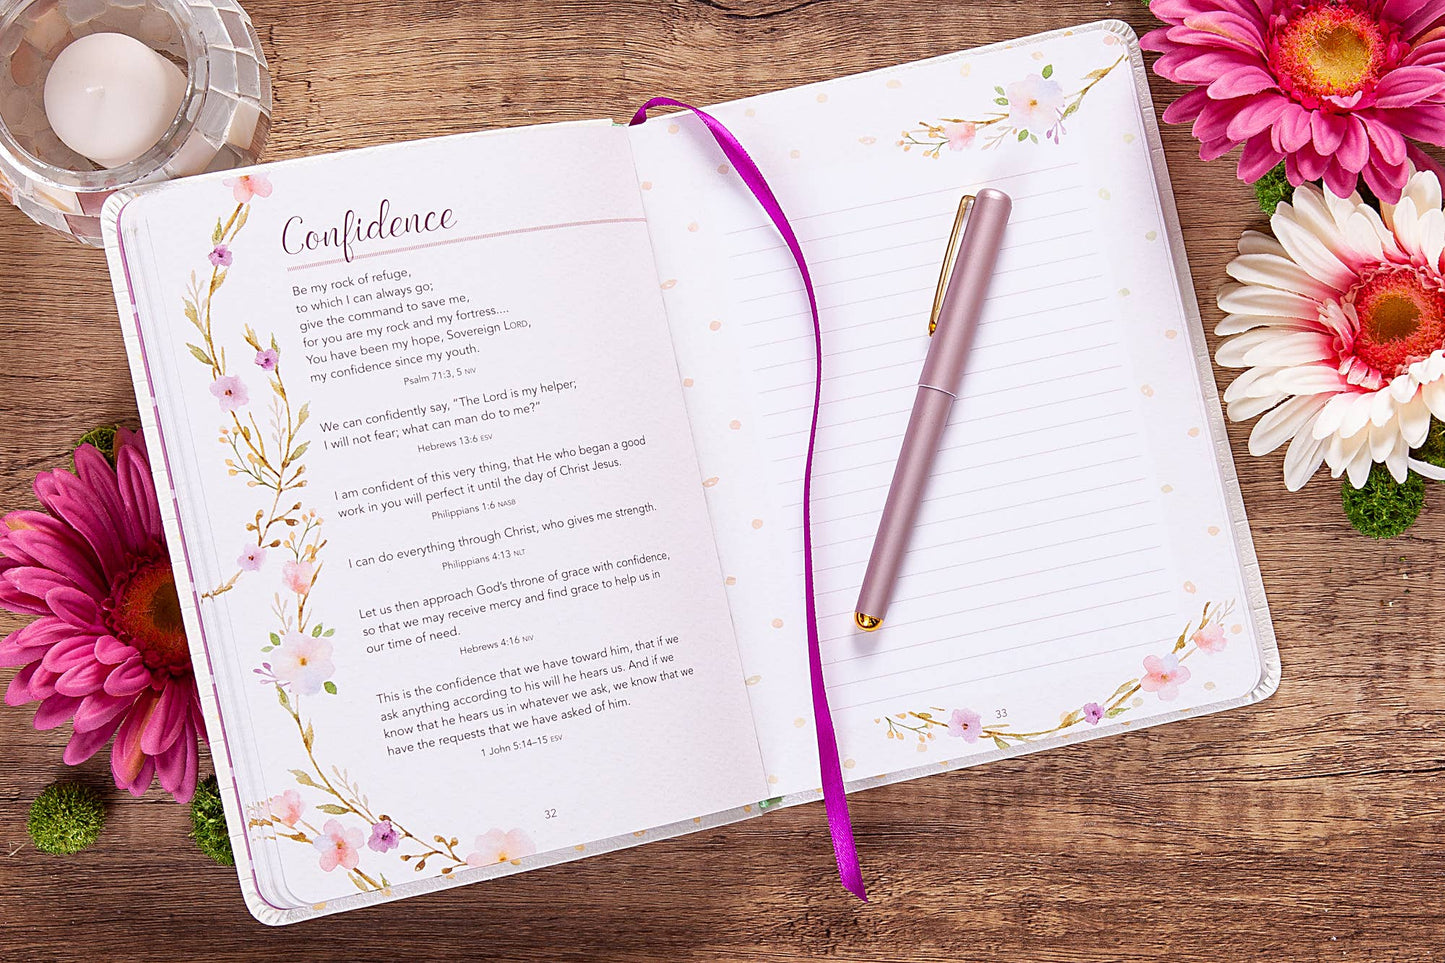 Confidence
Be my rock of refuge,
to which I can always go;
give the command to save me,
for you are my rock and my fortress....
You have been my hope, Sovereign LORD,
my confidence since my youth.
Psalm 71:3, 5 NIV
We can confidently say, “The Lord is my helper;
I will not fear; what can man do to me?”
Hebrews 13:6 ESV
I am confident of this very thing, that He who began a good
work in you will perfect it until the day of Christ Jesus.
Philippians 1:6 NASB
I can do everything through Christ, who gives me strength.
Philippians 4:13 NLT
Let us then approach God’s throne of grace with confidence,
so that we may receive mercy and find grace to help us in
our time of need.
Hebrews 4:16 NIV
This is the confidence that we have toward him, that if we
ask anything according to his will he hears us. And if we
know that he hears us in whatever we ask, we know that we
have the requests that we have asked of him.
1 John 5:14–15 ESV
32
33